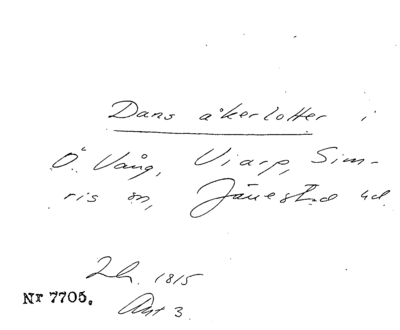 Dans åkerlotter i
Ö. Vång, Viarp, Sim-
ris sn, Järrestad hd.
Lh. 1815
Akt 3
Nr 7705.